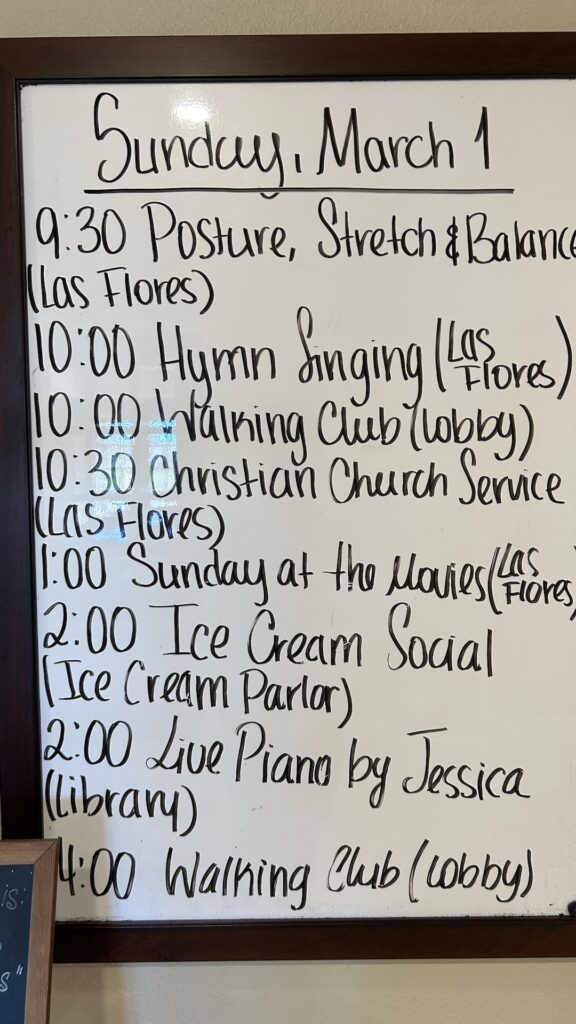 Sunday, March 1
9:30 Posture, Stretch & Balance
(Las Flores)
10:00 Hymn Singing (Las Flores)
10:00 Walking Club (Lobby)
10:30 Christian Church Service
(Las Flores)
1:00 Sunday at the Movies (Las Flores)
2:00 Ice Cream Social
(Ice Cream Parlor)
2:00 Live Piano by Jessica
(Library)
4:00 Walking Club (Lobby)
is:
s"